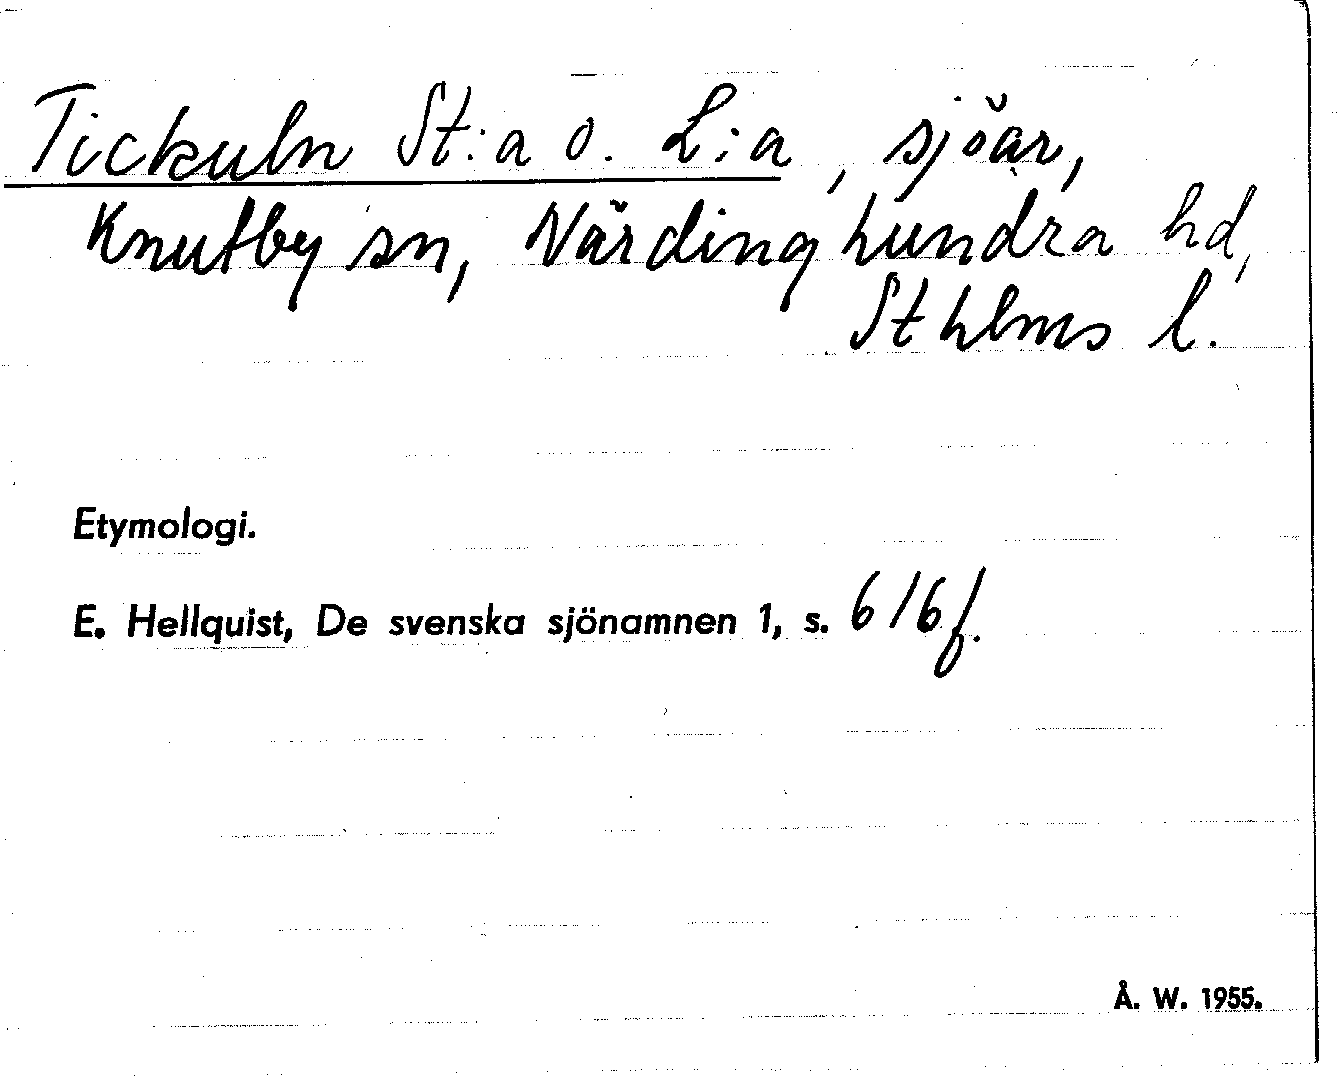 Tickuln St:a o. L:a, sjöar,
Knutby sn, Närdinghundra hd,
Sthlms l.
Etymologi.
E. Hellquist, De svenska sjönamnen 1, s. 616 f.
Å. W. 1955.